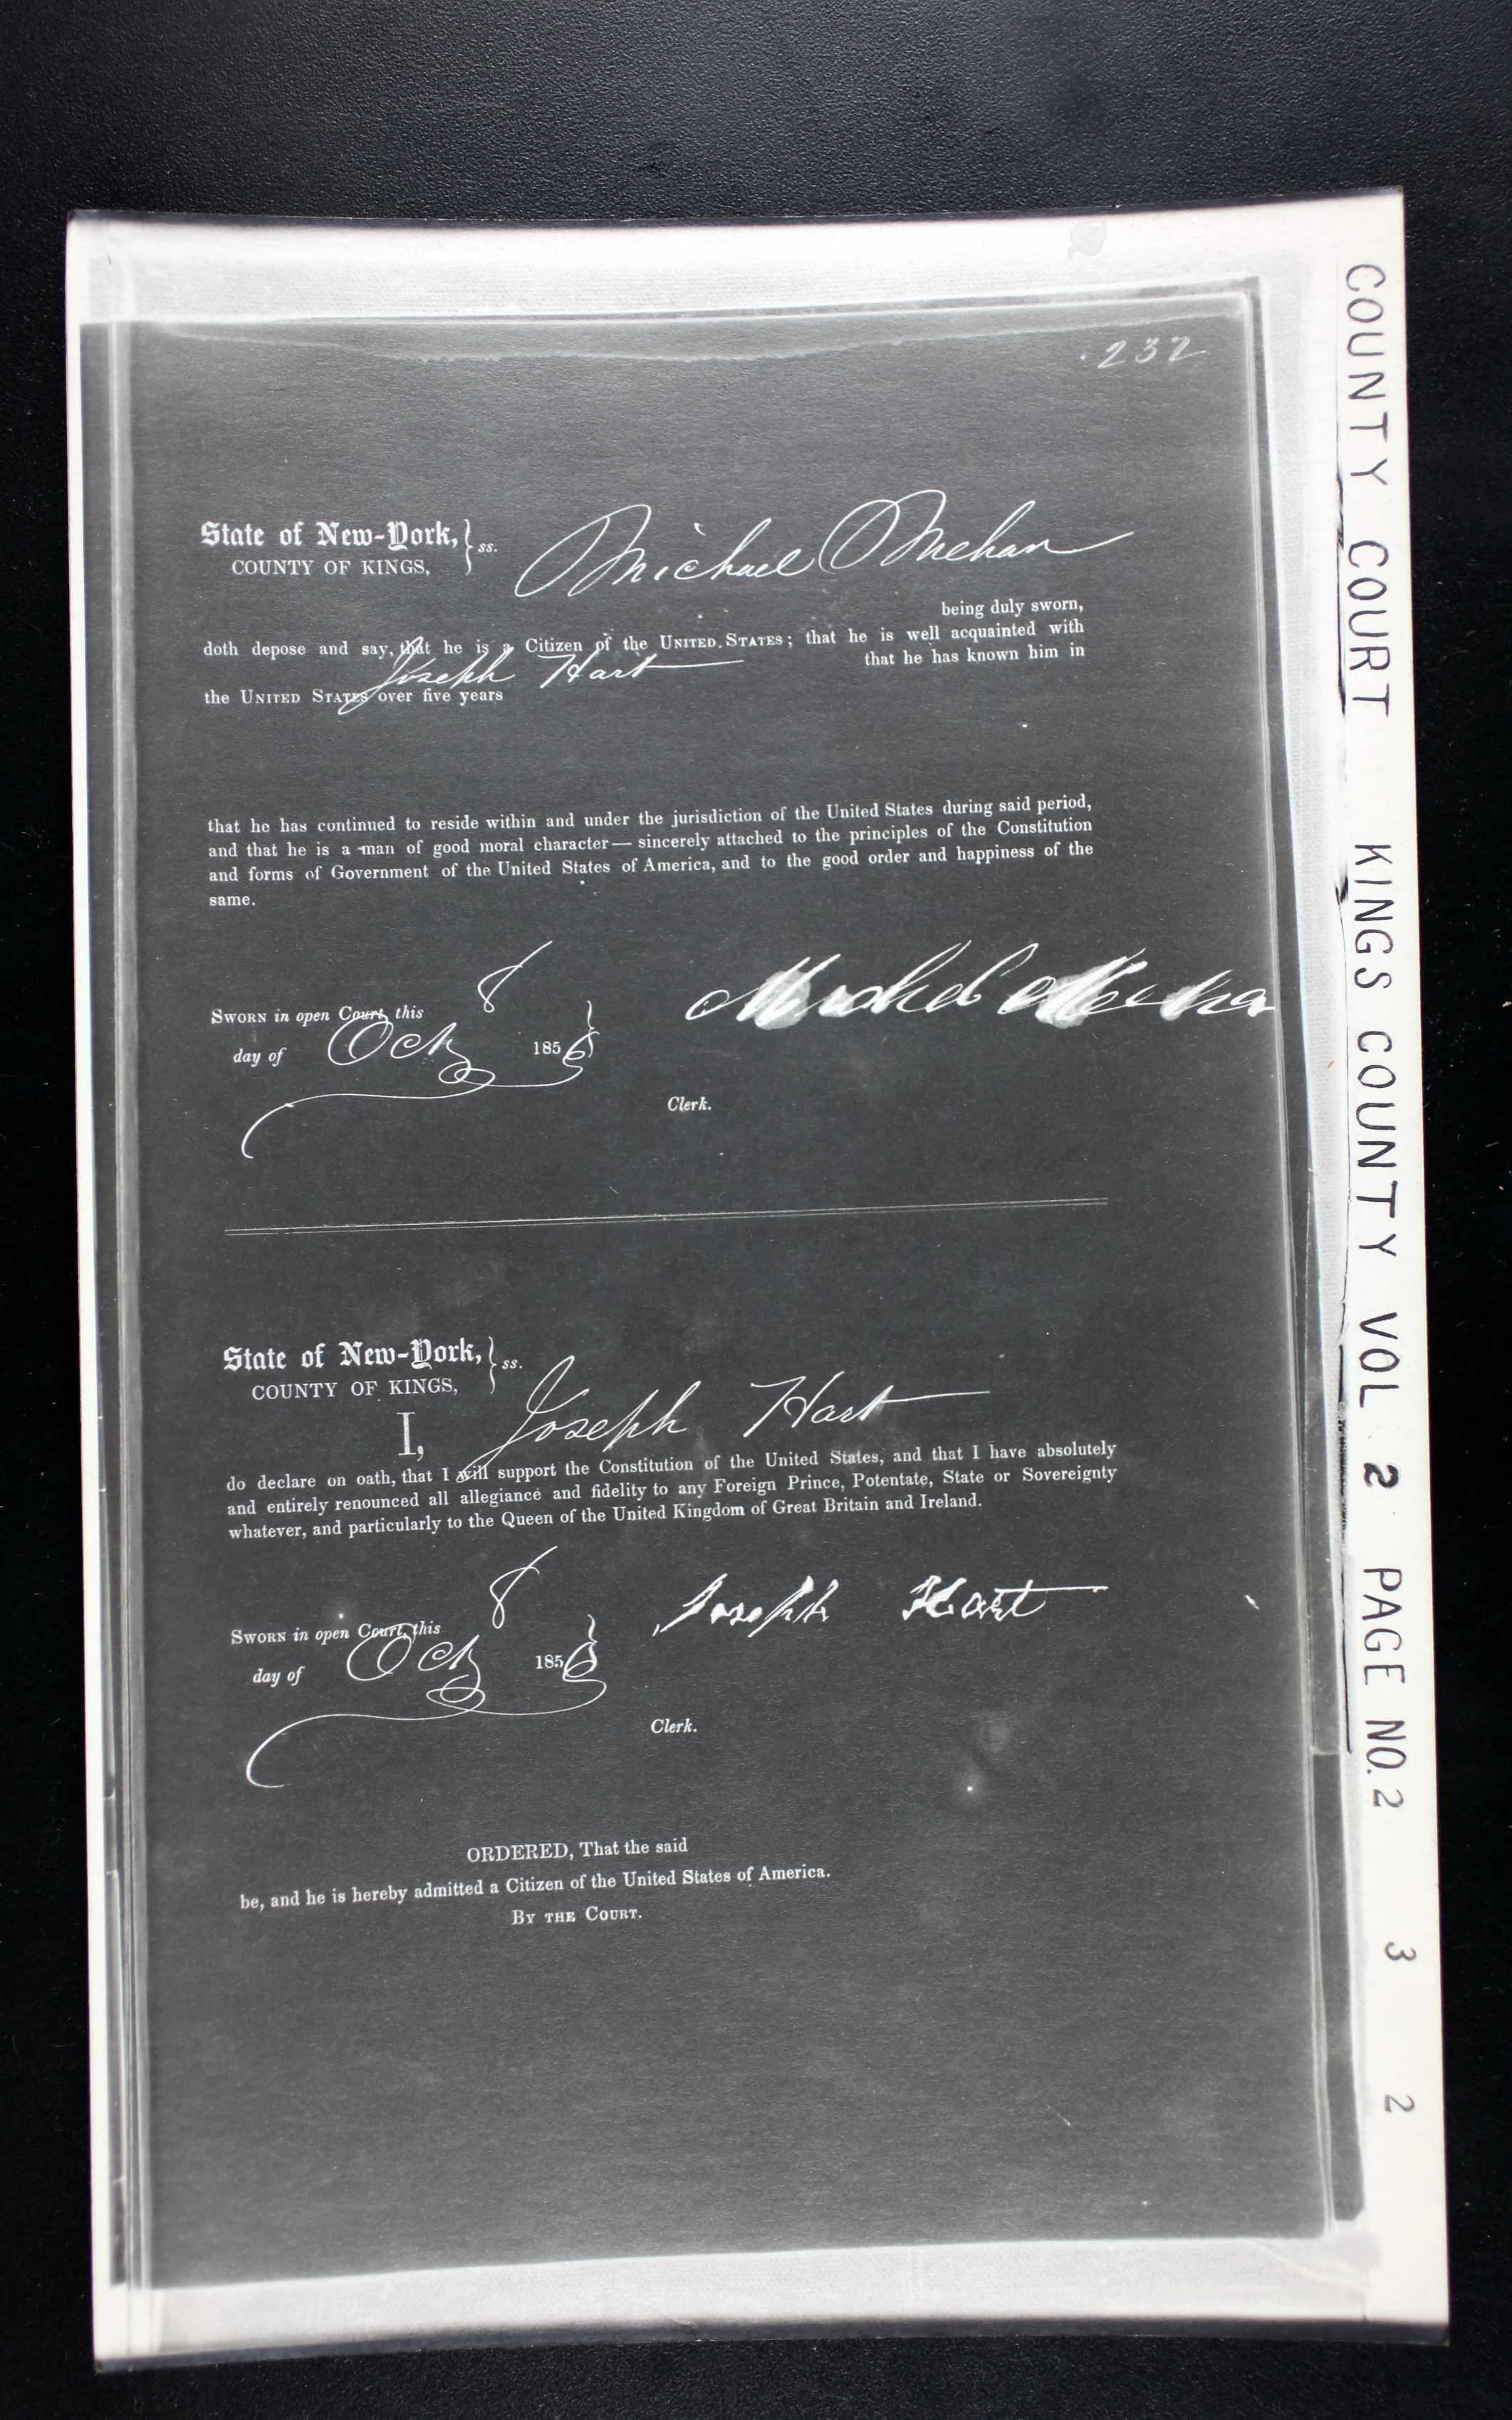 232
State of New-York, } ss.
COUNTY OF KINGS,
Michael Mehan
being duly sworn,
doth depose and say, that he is a Citizen of the UNITED STATES; that he is well acquainted with
Joseph Hart that he has known him in
the UNITED STATES over five years
that he has continued to reside within and under the jurisdiction of the United States during said period,
and that he is a man of good moral character — sincerely attached to the principles of the Constitution
and forms of Government of the United States of America, and to the good order and happiness of the
same.
SWORN in open Court, this 8
day of Oct 1856 }
Michael
Clerk.
State of New-York, } ss.
COUNTY OF KINGS,
I, Joseph Hart
do declare on oath, that I will support the Constitution of the United States, and that I have absolutely
and entirely renounced all allegiance and fidelity to any Foreign Prince, Potentate, State or Sovereignty
whatever, and particularly to the Queen of the United Kingdom of Great Britain and Ireland.
SWORN in open Court, this 8
day of Oct 1856 }
Joseph Hart
Clerk.
ORDERED, That the said
be, and he is hereby admitted a Citizen of the United States of America.
BY THE COURT.
COUNTY COURT KINGS COUNTY VOL 2 PAGE NO. 2 3 2